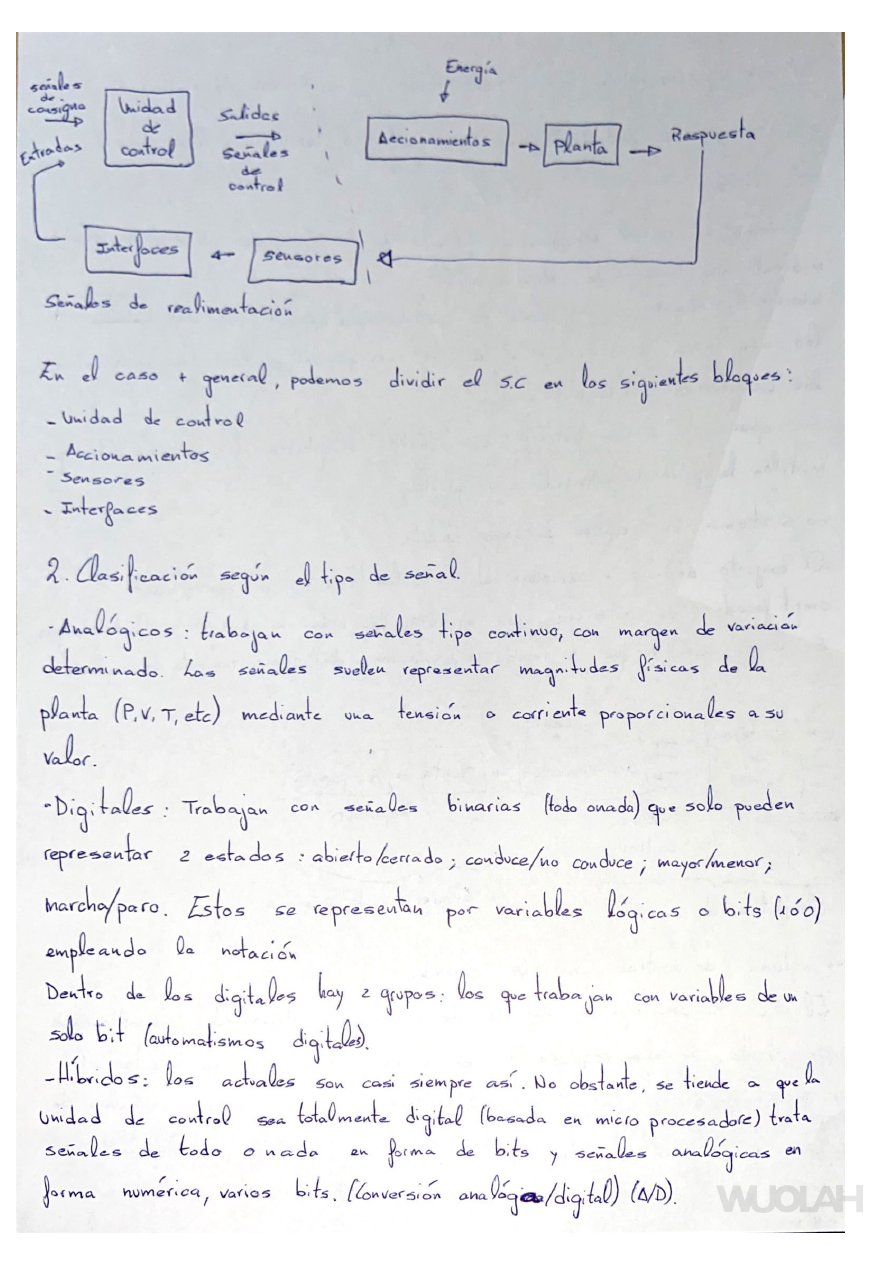 Energía
señales
de
consigna
Entradas
Unidad
de
control
Salidas
Señales
de
control
Accionamientos
Planta
Respuesta
Interfaces
Sensores
Señales de realimentación
En el caso + general, podemos dividir el S.C en los siguientes bloques:
- Unidad de control
- Accionamientos
- Sensores
- Interfaces
2. Clasificación según el tipo de señal.
· Analógicos: trabajan con señales tipo continuo, con margen de variación
determinado. Las señales suelen representar magnitudes físicas de la
planta (P, V, T, etc) mediante una tensión o corriente proporcionales a su
valor.
- Digitales: Trabajan con señales binarias (todo o nada) que solo pueden
representar 2 estados: abierto/cerrado; conduce/no conduce; mayor/menor;
marcha/paro. Estos se representan por variables lógicas o bits (1 ó 0)
empleando la notación
Dentro de los digitales hay 2 grupos: los que trabajan con variables de un
solo bit (automatismos digitales).
- Híbridos: los actuales son casi siempre así. No obstante, se tiende a que la
unidad de control sea totalmente digital (basada en micro procesadore) trata
señales de todo o nada en forma de bits y señales analógicas en
forma numérica, varios bits. (Conversión analógica/digital) (A/D).
WUOLAH